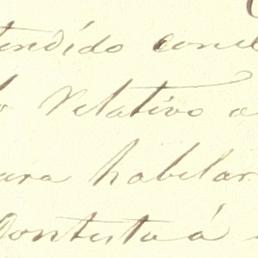 tendido conc
relativo a
para habilar
Contesta á